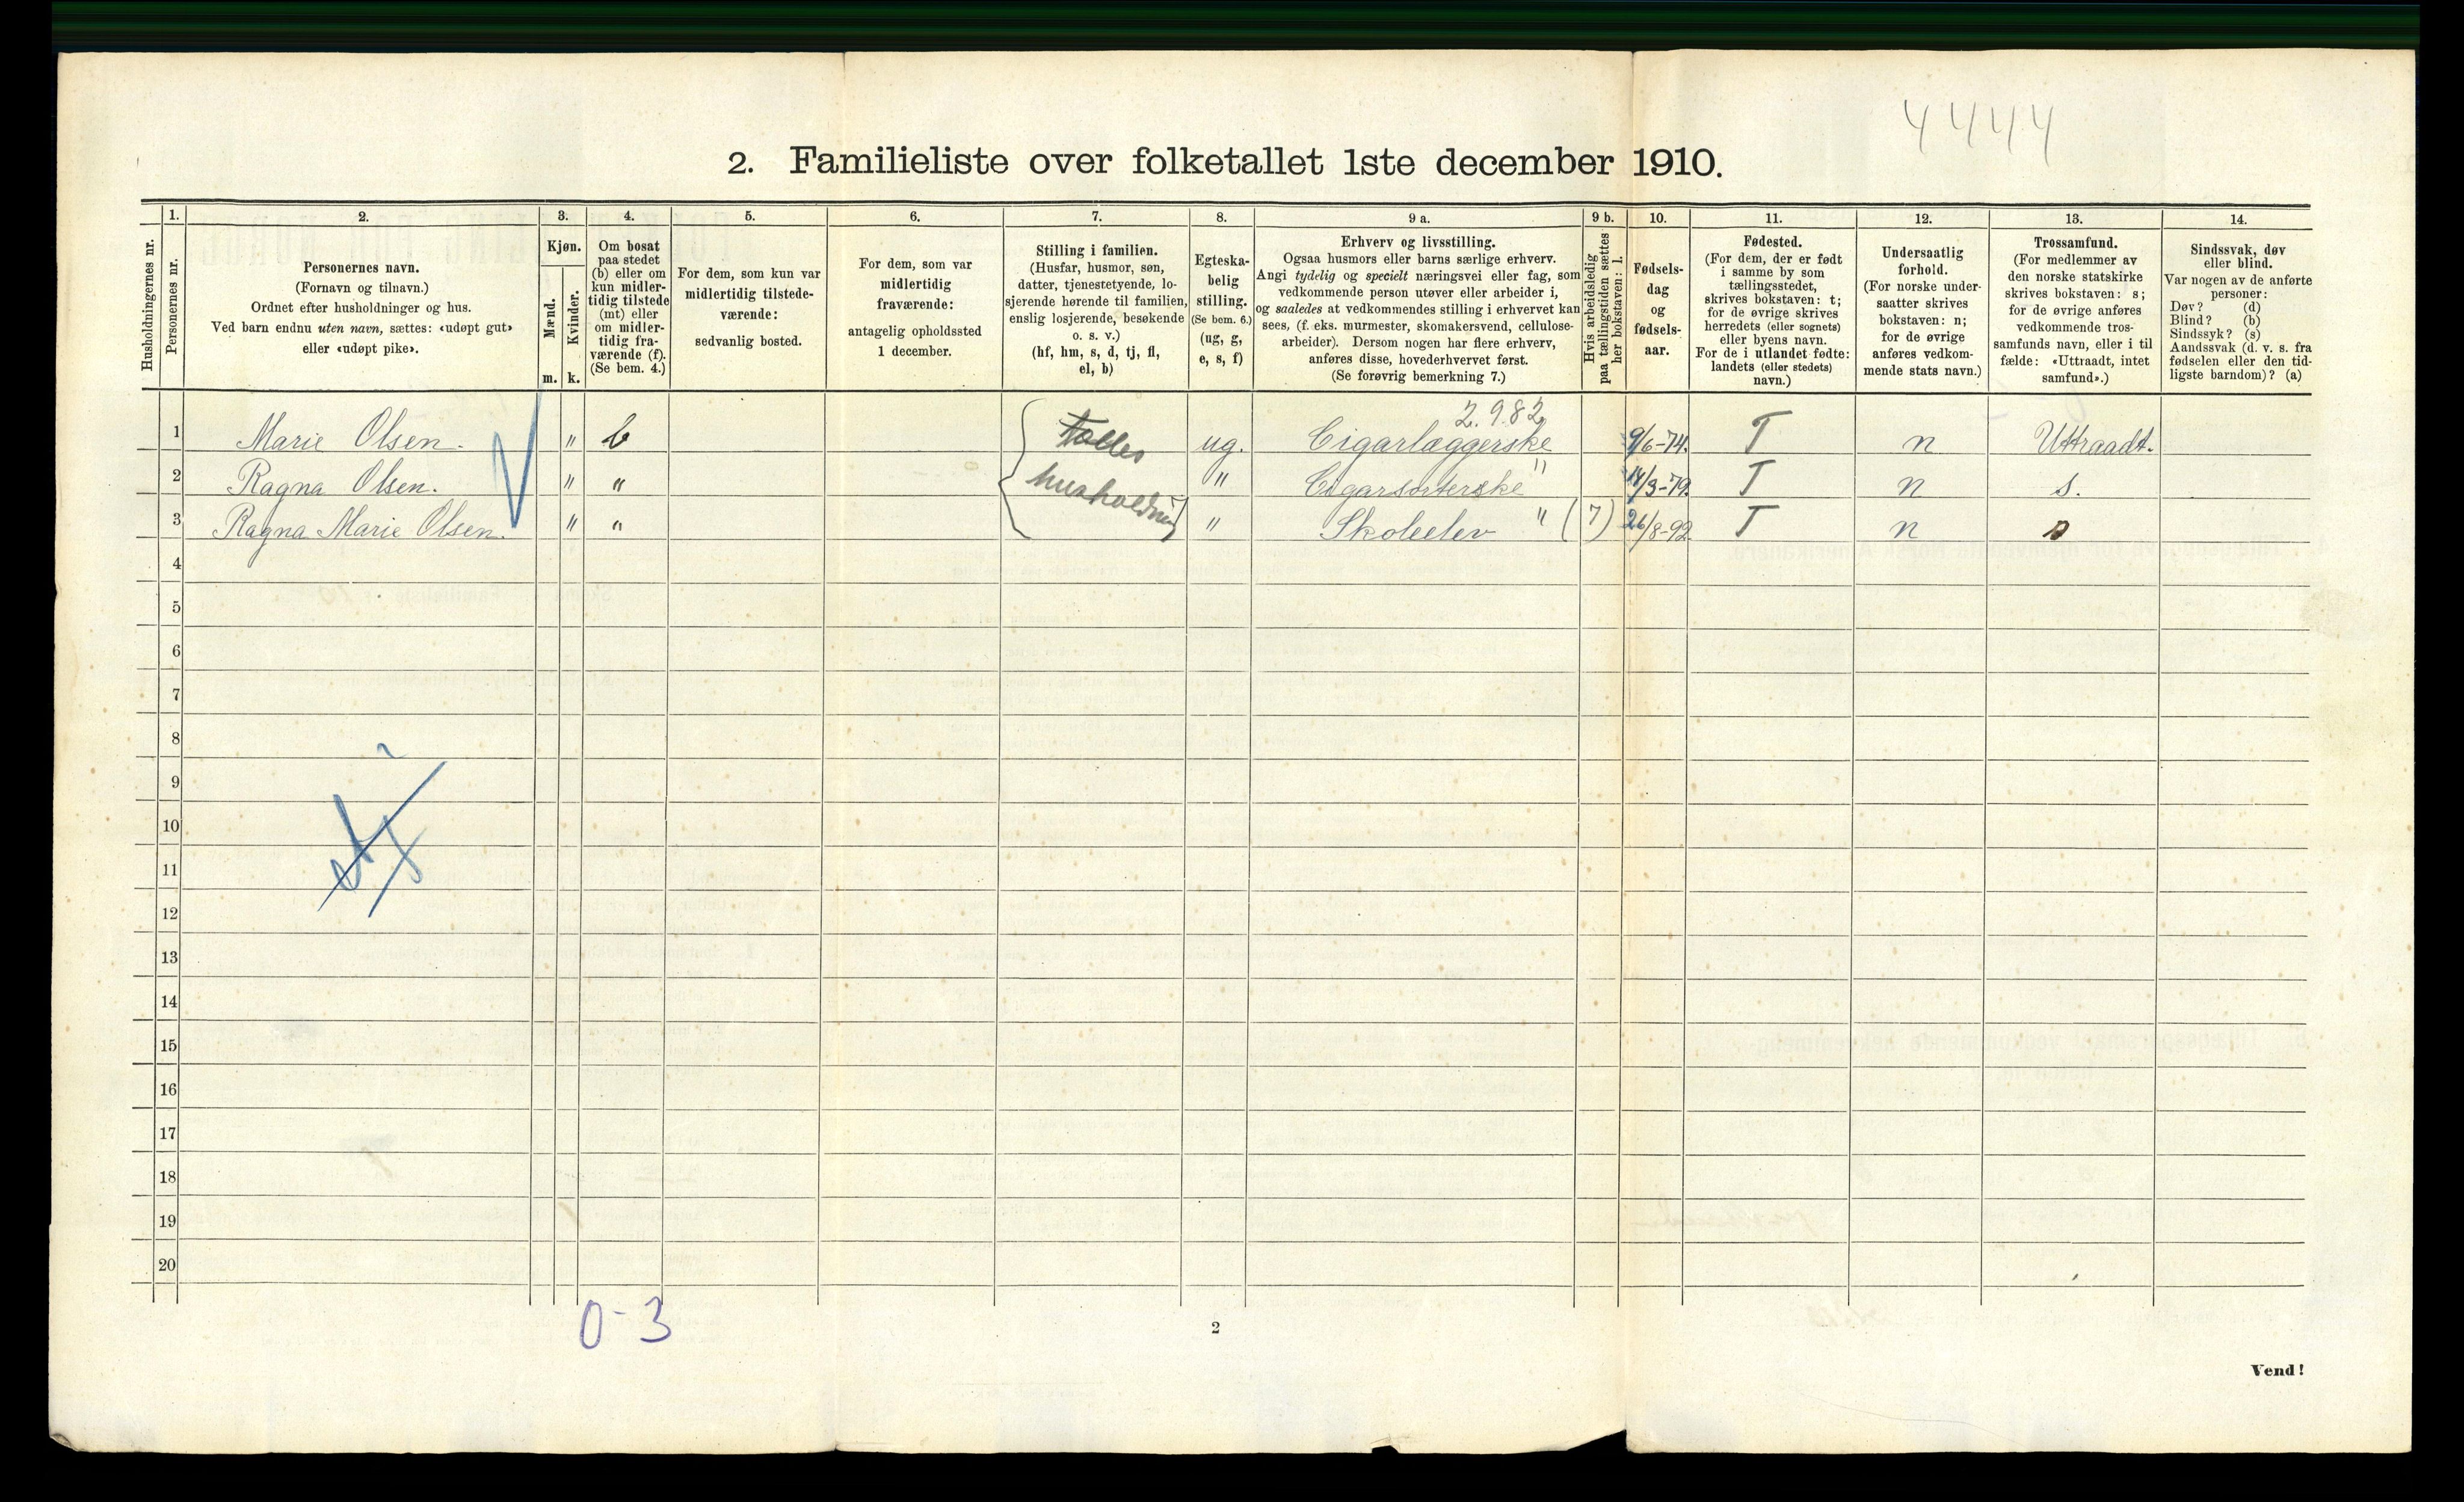 4444
2. Familieliste over folketallet 1ste december 1910.
Husholdningernes nr.
1.
Personernes nr.
2.
Personernes navn.
(Fornavn og tilnavn.)
Ordnet efter husholdninger og hus.
Ved barn endnu uten navn, sættes: «udøpt gut»
eller «udøpt pike».
3.
Kjøn.
Mænd.
Kvinder.
m. k.
4.
Om bosat
paa stedet
(b) eller om
kun midler-
tidig tilstede
(mt) eller
om midler-
tidig fra-
værende (f).
(Se bem. 4.)
5.
For dem, som kun var
midlertidig tilstede-
værende:
sedvanlig bosted.
6.
For dem, som var
midlertidig
fraværende:
antagelig opholdssted
1 december.
7.
Stilling i familien.
(Husfar, husmor, søn,
datter, tjenestetyende, lo-
sjerende hørende til familien,
enslig losjerende, besøkende
o. s. v.)
(hf, hm, s, d, tj, fl,
el, b)
8.
Egteska-
belig
stilling.
(Se bem. 6.)
(ug, g,
e, s, f)
9 a.
Erhverv og livsstilling.
Ogsaa husmors eller barns særlige erhverv.
Angi tydelig og specielt næringsvei eller fag, som
vedkommende person utøver eller arbeider i,
og saaledes at vedkommendes stilling i erhvervet kan
sees, (f. eks. murmester, skomakersvend, cellulose-
arbeider). Dersom nogen har flere erhverv,
anføres disse, hovederhvervet først.
(Se forøvrig bemerkning 7.)
9 b.
Hvis arbeidsledig
paa tællingstiden sættes
her bokstaven: l.
10.
Fødsels-
dag
og
fødsels-
aar.
11.
Fødested.
(For dem, der er født
i samme by som
tællingsstedet,
skrives bokstaven: t;
for de øvrige skrives
herredets (eller sognets)
eller byens navn.
For de i utlandet fødte:
landets (eller stedets)
navn.)
12.
Undersaatlig
forhold.
(For norske under-
saatter skrives
bokstaven: n;
for de øvrige
anføres vedkom-
mende stats navn.)
13.
Trossamfund.
(For medlemmer av
den norske statskirke
skrives bokstaven: s;
for de øvrige anføres
vedkommende tros-
samfunds navn, eller i til
fælde: «Uttraadt, intet
samfund».)
14.
Sindssvak, døv
eller blind.
Var nogen av de anførte
personer:
Døv? (d)
Blind? (b)
Sindssyk? (s)
Aandssvak (d. v. s. fra
fødselen eller den tid-
ligste barndom)? (a)
2.9.82
1 Marie Olsen. " b fælles ug. Cigarlæggerske 9/6-74. T n Uttraadt.
2 Ragna Olsen. " " husholdning " Cigarsorterske " 14/3-79. T n s.
3 Ragna Marie Olsen. " " " Skoleelev " (7) 26/8-92. T n s
4
5
6
7
8
9
10
11
12
13
14
15
16
17
18
19
20
0-3
2
Vend!